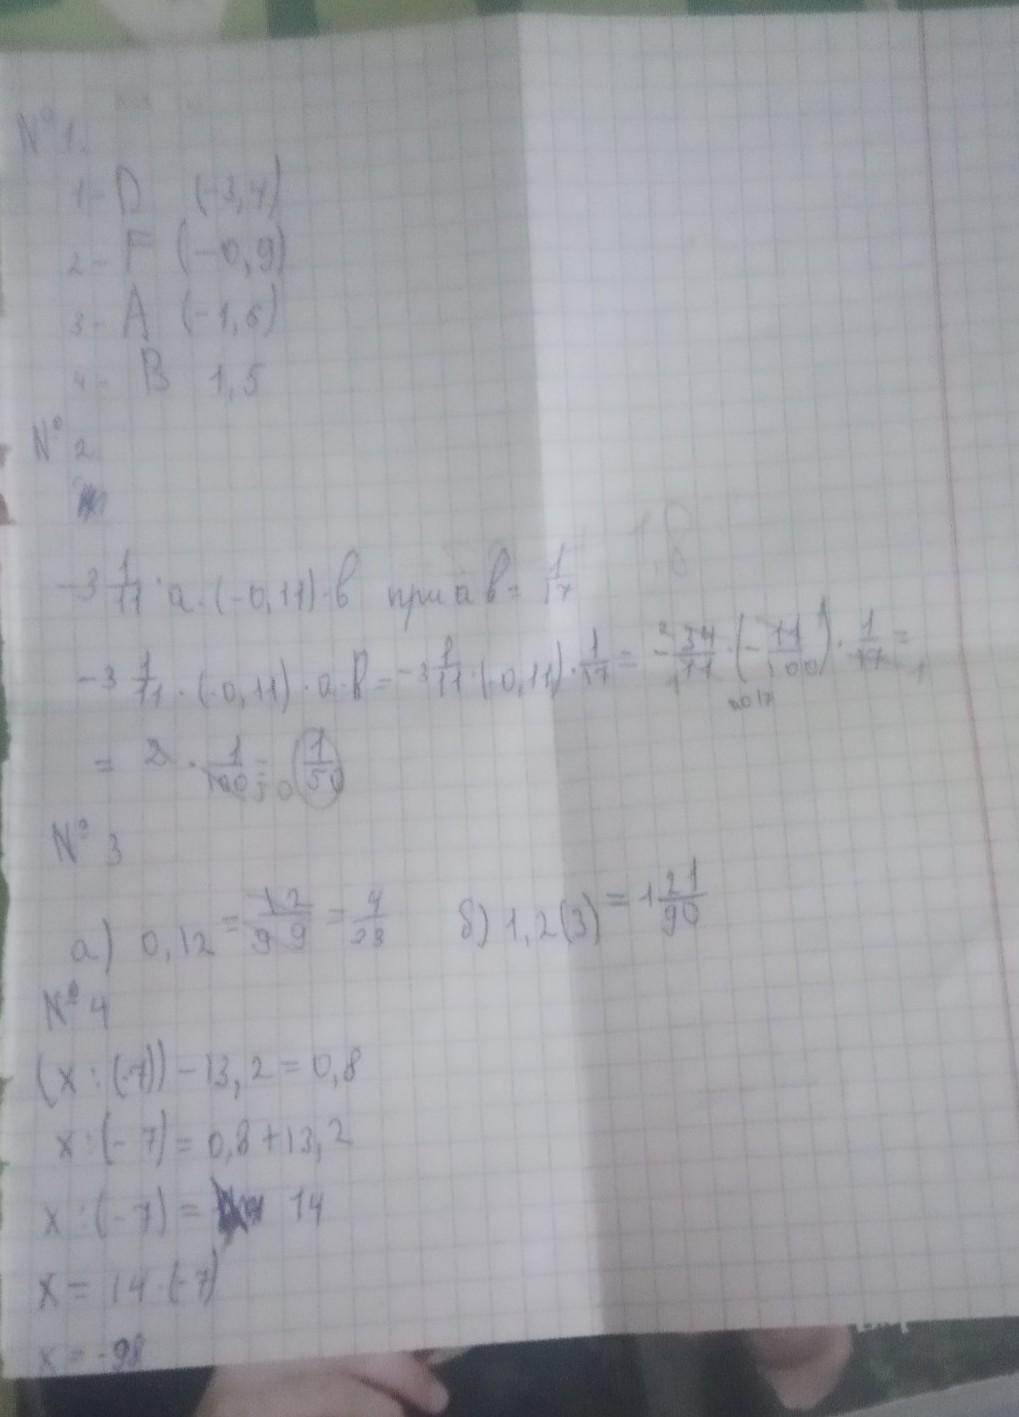 № 1.
1- D (-3,4)
2- F (-0,9)
3- A (-1,6)
4- B 1,5
№ 2
-3 1/11 · a · (-0,11) · b при a b = 1/17
-3 1/11 · (-0,11) · a · b = -3 1/11 · (-0,11) · 1/17 = - 34/11 · (- 11/100) · 1/17 =
= 2 · 1/100 = 1/50
№ 3
а) 0,12 = 12/99 = 4/33 б) 1,2(3) = 1 21/90
№ 4
(x : (-7)) - 13,2 = 0,8
x : (-7) = 0,8 + 13,2
x : (-7) = 14
x = 14 · (-7)
x = -98